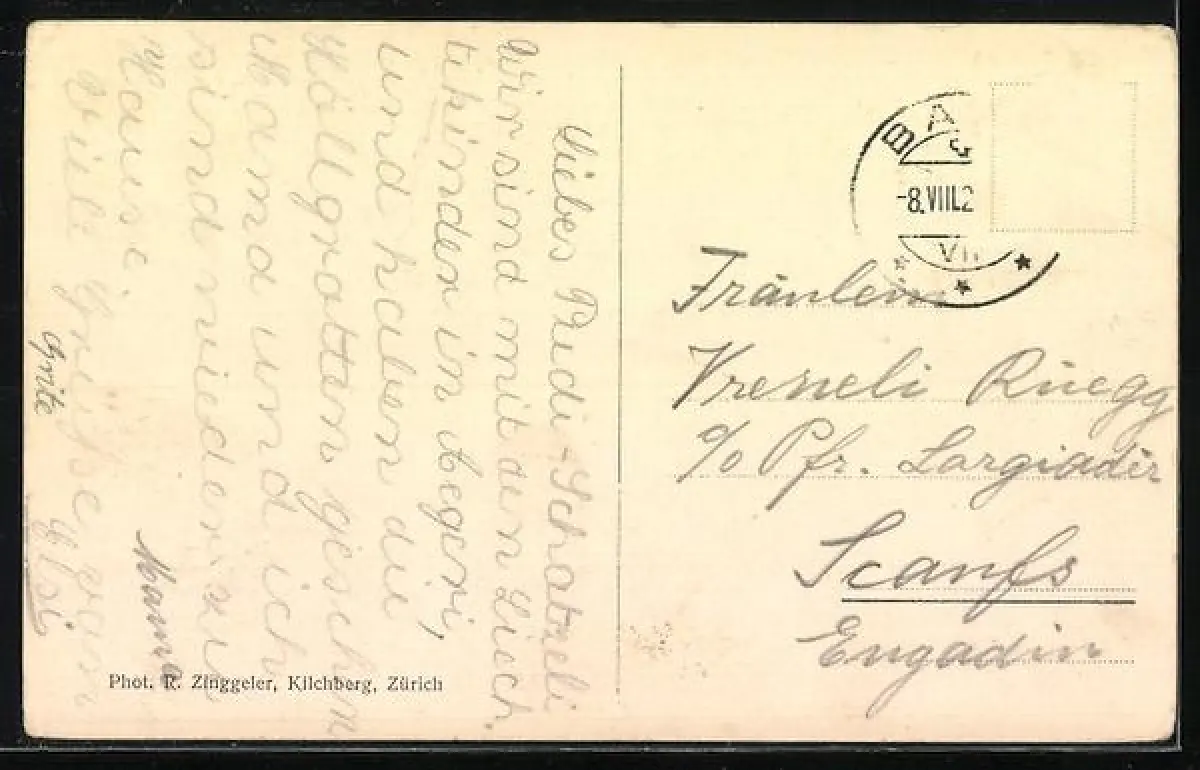 Liebes Ruedi-Schatzeli
Wir sind mit den Liech
tekinder in Aegeri,
und haben die
Höllgrotten gesehn
Mama und ich
sind wieder im
Hause.
Viele Grüsse von
Elsi
Mama
BA
-8.VIII.2
VII
Fräulein
Vreneli Rüegg
c/o Pfr. Largiadèr
Scanfs
Engadin
Phot. R. Zinggeler, Kilchberg, Zürich